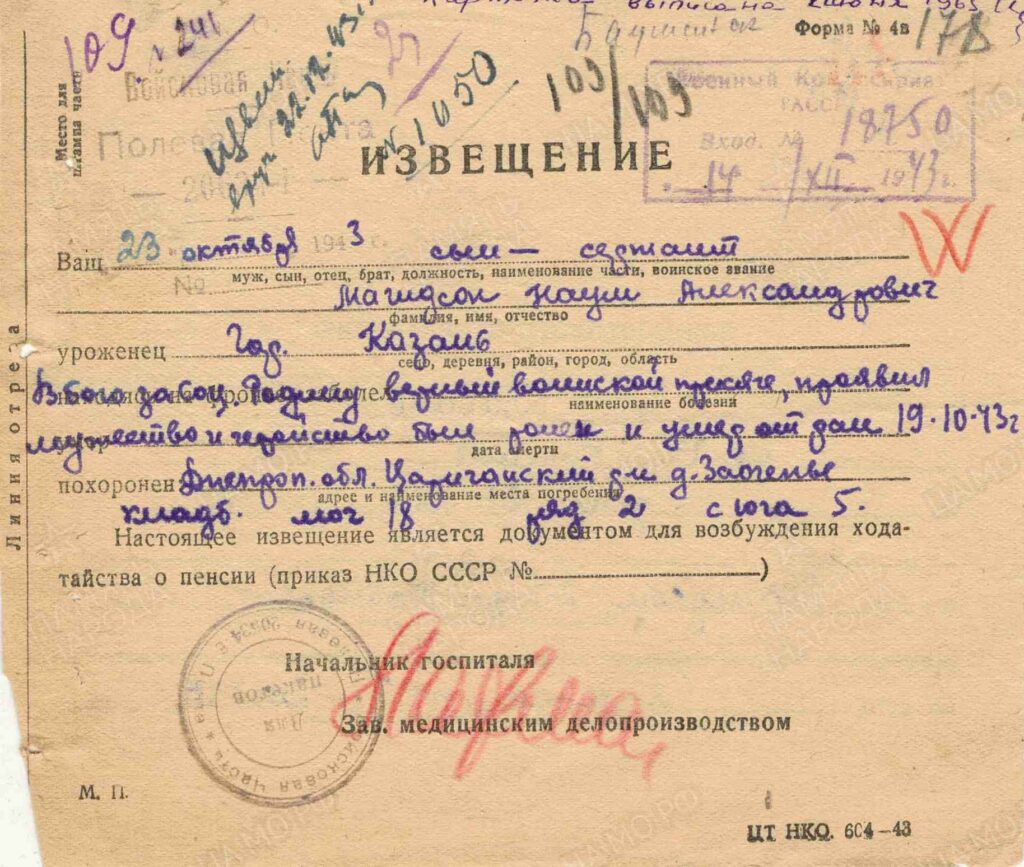 выписана
Форма № 4в
178
109
№ 241
Место для
штампа части
Войсковая
Полевая Почта
22.12.43
№ 1050
103/103
Военный Ком
ТАССР
Вход. №
18750
14 / XII 1943 г.
ИЗВЕЩЕНИЕ
23 октября 1943 г.
№
Ваш сын — сержант
муж, сын, отец, брат, должность, наименование части, воинское звание
Магидсон Наум Александрович
фамилия, имя, отчество
уроженец Гор. Казань
село, деревня, район, город, область
В бою за соц. Родину верный воинской присяге, проявил
наименование болезни
мужество и геройство был ранен и умер от ран 19.10.43 г
дата смерти
похоронен: Днепроп. обл. Царичанский р-н д. Заоченье
адрес и наименование места погребения
кладб. мог 18 ряд 2 с юга 5.
Настоящее извещение является документом для возбуждения хода-
тайства о пенсии (приказ НКО СССР № )
Линия отреза
Начальник госпиталя
Зав. медицинским делопроизводством
Войсковая часть
Для
пакетов
М. П.
ЦТ НКО. 604—43